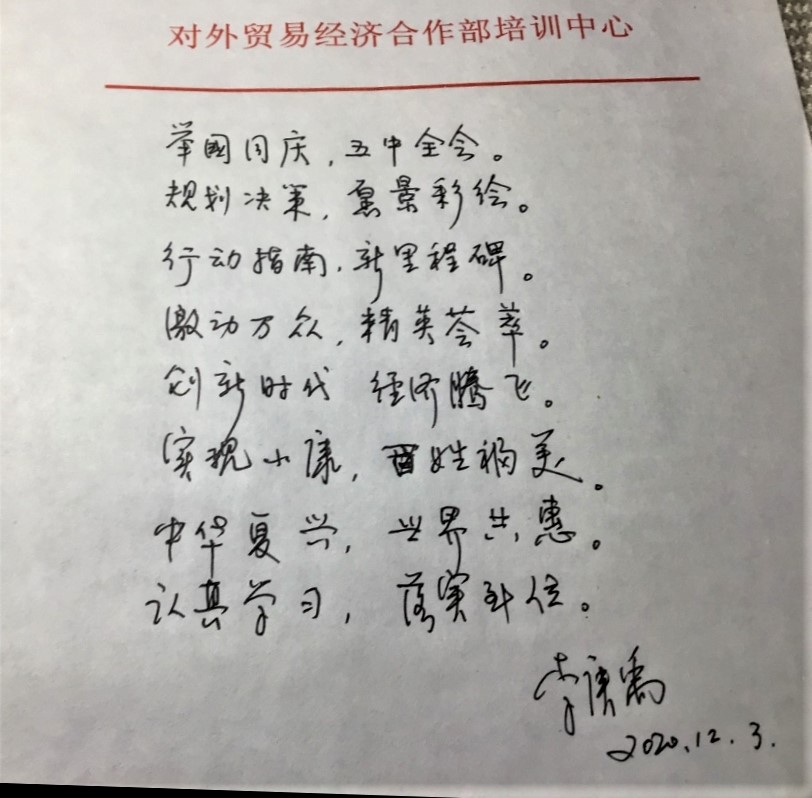 对外贸易经济合作部培训中心
举國同庆，五中全会。
规划决策，愿景彩绘。
行动指南，新里程碑。
激动万众，精英荟萃。
创新时代 经济腾飞。
实现小康，百姓福美。
中华复兴，世界共惠。
认真学习，落实到位。
李康禹
2020.12.3.